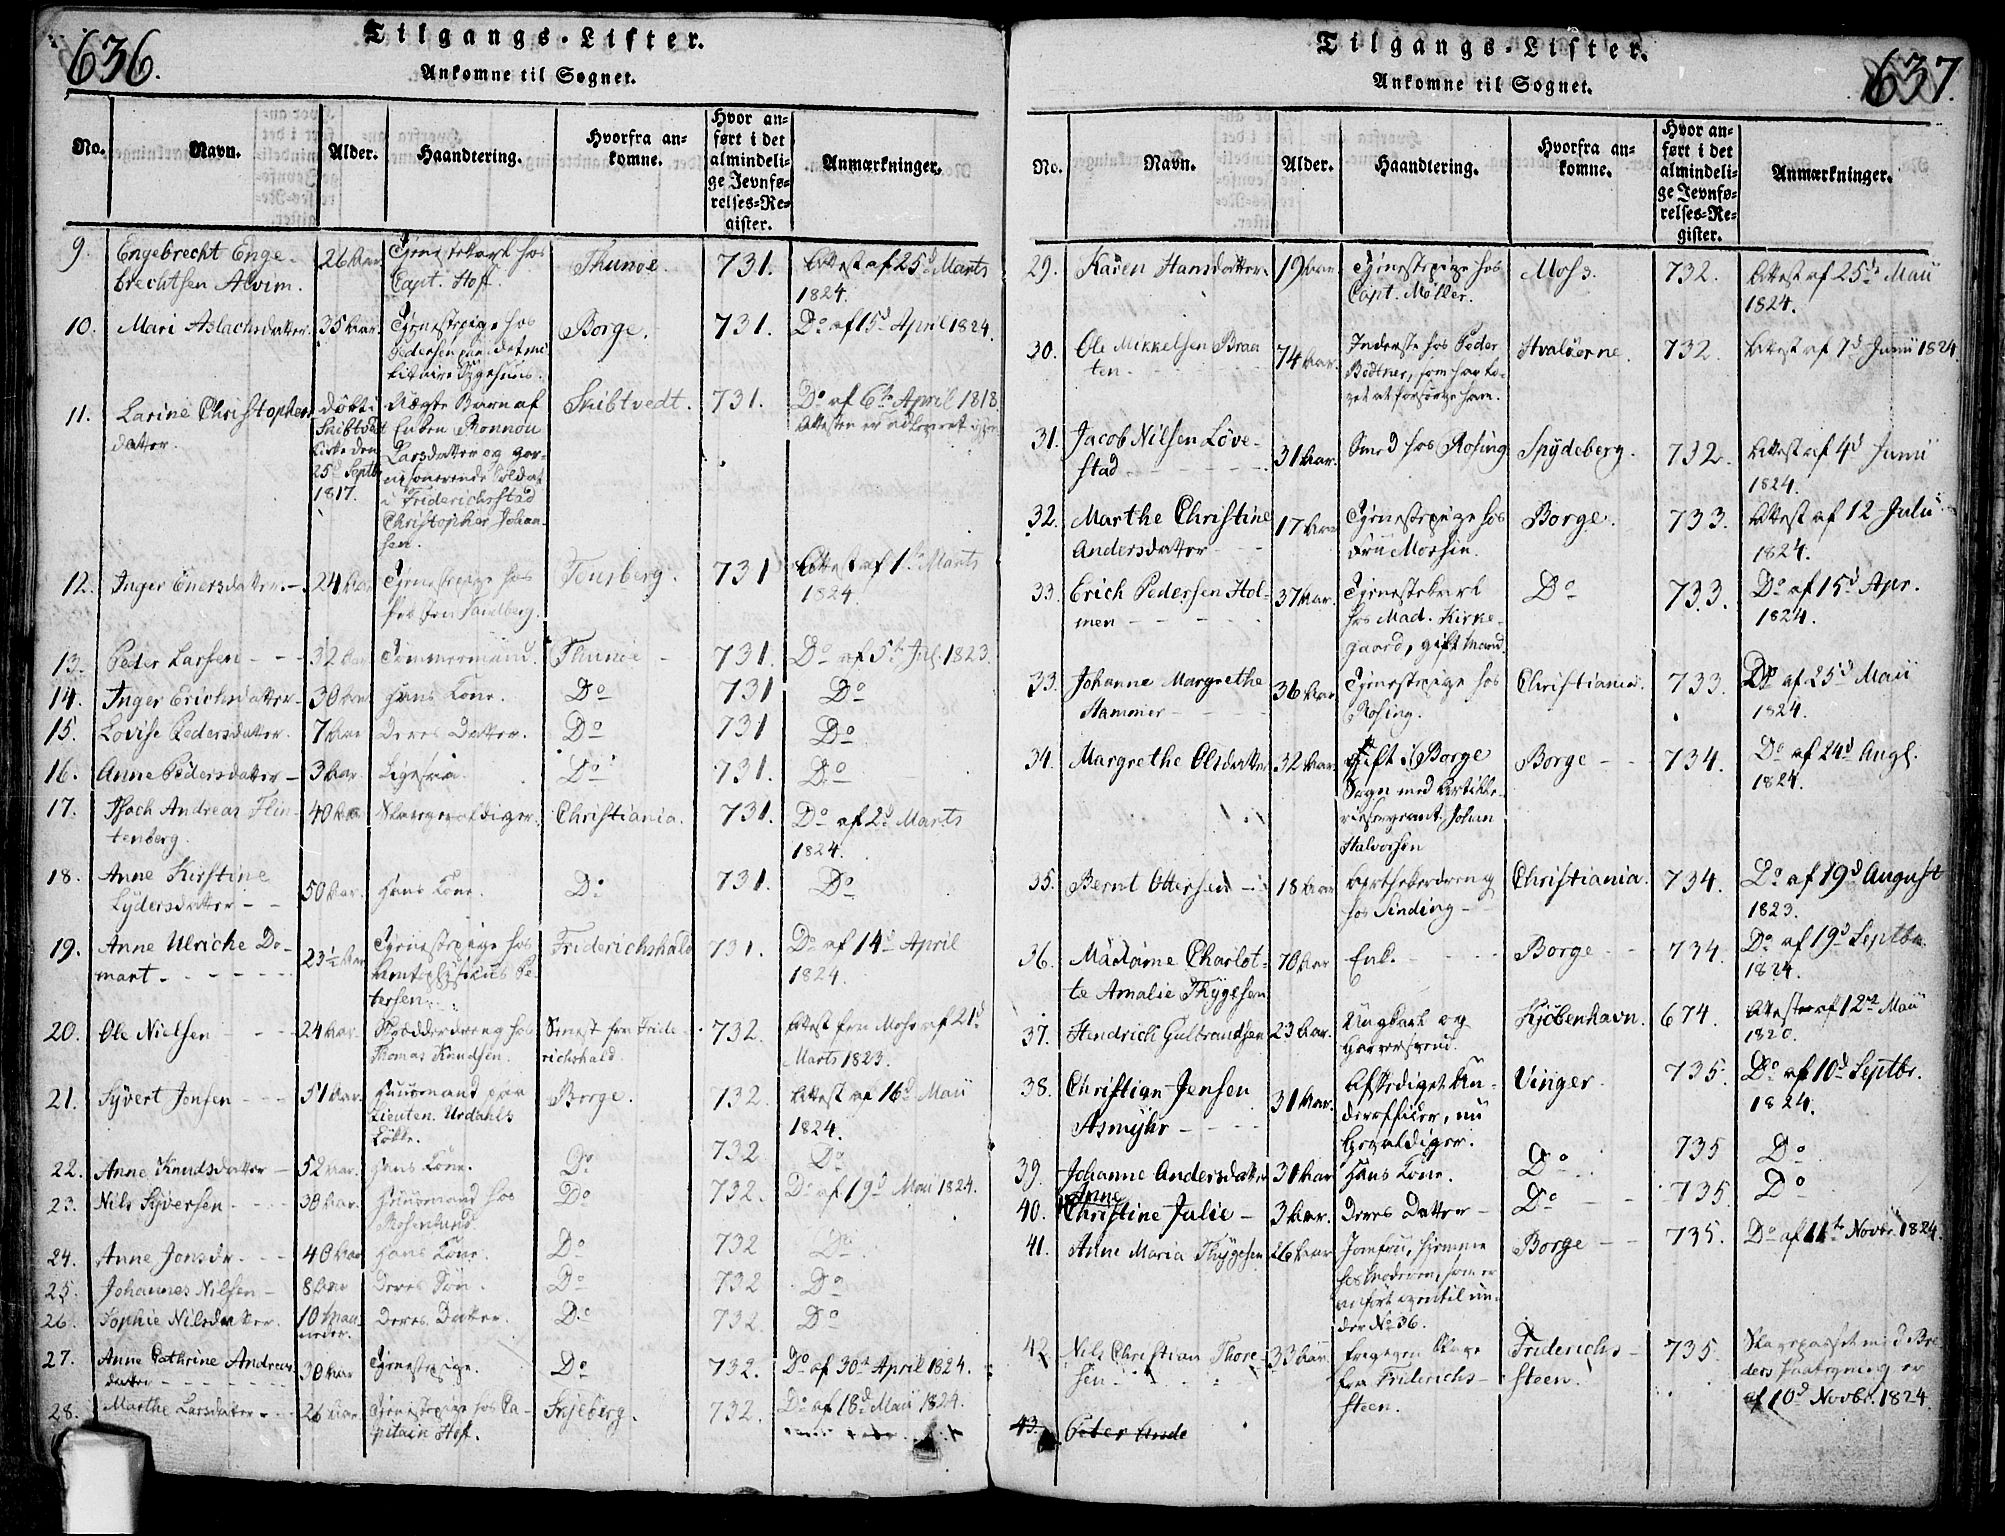 636.
Tilgangs-Lister.
Ankomne til Sognet.
No. Navn. Alder. Haandtering. Hvorfra ankomne. Hvor anført i det almindelige Jevnførelses-Register. Anmærkninger.
9. Engebrecht Engebrechtsen Alvim. 26 Aar Tjenestekarl hos Capt. Hoff. Thunøe. 731. Attest af 25d Marts 1824.
10. Mari Aslachsdatter. 35 Aar. Tjenestepige hos Pedersen paa det militaire Sygehuus. Borge. 731. Do af 15d April 1824.
11. Larine Christophersdatter. døbt i Skibtvedt Kirke den 25d Septbr 1817. Uægte Barn af Enken Rønnou Larsdatter og garnisonerende Soldat i Friderichsstad Christopher Johansen. Skibtvedt. 731. Do af 6te April 1818.
Attesten er udleveret igjen
12. Inger Enersdatter. 24 Aar Tjenestepige hos Sandberg. Tensberg. 731 Attest af 1ste Marts 1824.
13. Peder Larsen 32 Aar Tømmermand. Thunøe 731. Do af 5te Jul. 1823.
14. Inger Erichsdatter 30 Aar Hans Kone. Do 731 Do
15. Lovise Pedersdatter. 7 Aar Deres Datter. Do 731 Do
16. Anne Pedersdatter 3 Aar. Ligesaa. Do 731. Do
17. Isach Andreas Flintenberg. 40 Aar Slavegevaldiger. Christiania. 731. Do af 2d Marts 1824.
18. Anne Kirstine Lydersdatter 50 Aar. Hans Kone. Do 731. Do
19. Anne Ulriche Domart 23½ Aar Tjenestepige hos Petersen. Friderichshald 731. Do af 14d April 1824.
20. Ole Nielsen 24 Aar. Skrædderdreng hos Thomas Knudsen. Senest fra Friderichshald. 732. Attest fra Moss af 21d Marts 1823.
21. Syvert Jonsen 51 Aar. Huusmand paa Lieuten. Urdahls Løkke. Borge. 732. Attest af 16d Maii 1824.
22. Anne Knudsdatter 52 Aar. Hans Kone. Do 732 Do
23. Nils Syversen 30 Aar. Huusmand hos Rosenlund. Do 732. Do af 19d Maii 1824.
24. Anne Jonsdr. 40 Aar Hans Kone. Do 732 Do
25. Johannes Nilsen 8 Aar Deres Søn. Do 732 Do
26. Sophie Nilsdatter. 10 Maaneder. Deres Datter. Do 732 Do
27. Anne Cathrine Andreasdatter 30 Aar Tjenestepige. Do 732. Do af 30te April 1824.
28. Marthe Larsdatter 26 Aar. Tjenestepige hos Capitain Hoff. Skjeberg. 732. Do af 18d Maii 1824.
637.
Tilgangs-Lister.
Ankomne til Sognet.
No. Navn. Alder. Haandtering. Hvorfra ankomne. Hvor anført i det almindelige Jevnførelses-Register. Anmærkninger.
29. Karen Hansdatter. 19 Aar Tjenestepige hos Capt. Møller. Moss. 732. Attest af 25de Maii 1824.
30. Ole Mikkelsen Braaten. 74 Aar. Inderste hos Peder Bødtner, som har lovet at forsørge ham. Hvaløerne. 732. Attest af 7d Junii 1824
31. Jacob Nilsen Løvestad 31 Aar. Smed hos Rosing Spydeberg. 732. Attest af 4d Junii 1824.
32. Marthe Christine Andersdatter 17 Aar Tjenestepige hos Fru Morsin. Borge. 733. Attest af 12 Julii 1824.
33. Erich Pedersen Holmen 37 Aar. Tjenestekarl hos Mad. Kirkegaard, gift Mand. Do 733. Do af 15d Apr. 1824.
33. Johanne Margrethe Hammer 36 Aar Tjenestepige hos Rosing. Christiania. 733. Do af 25d Maii 1824.
34. Margrethe Olsdatter 32 Aar Gift i Borge Sogn med Artilleriesergeant Johan Halvorsen Borge 734. Do af 24d Augs. 1824.
35. Bernt Ottersen 18 Aar Apothekerdreng hos Sinding Christiania. 734. Do af 19d August 1823.
36. Madame Charlotte Amalie Thygesen 70 Aar Enk. Borge 734. Do af 19d Septbr. 1824.
37. Hendrich Gulbrandsen 23 Aar. Ungkarl og Garversvend. Kjöbenhavn. 674. Attest af 12te Maii 1820.
38. Christian Jensen Asmyhr 31 Aar. Afskediget Underofficer, nu Gevaldiger. Vinger. 735. Do af 10d Septbr. 1824.
39. Johanne Andersdatter 31 Aar Hans Kone. Do 735 Do
40. Anne Christine Julie 3 Aar. Deres Datter Do 735 Do
41. Anne Maria Thygesen 26 Aar Jomfru, hjemme hos Moderen, som er anført ogentil under No 36. Borge 735. Do af 11te Novbr. 1824.
42 Nils Christian Thoresen. 33 Aar. Frigiven Slave fra Friderichssteen. Friderichssteen. 735. Slavepasset med Breders Paategning er af 10d Novbr. 1824.
43. Peter Ande